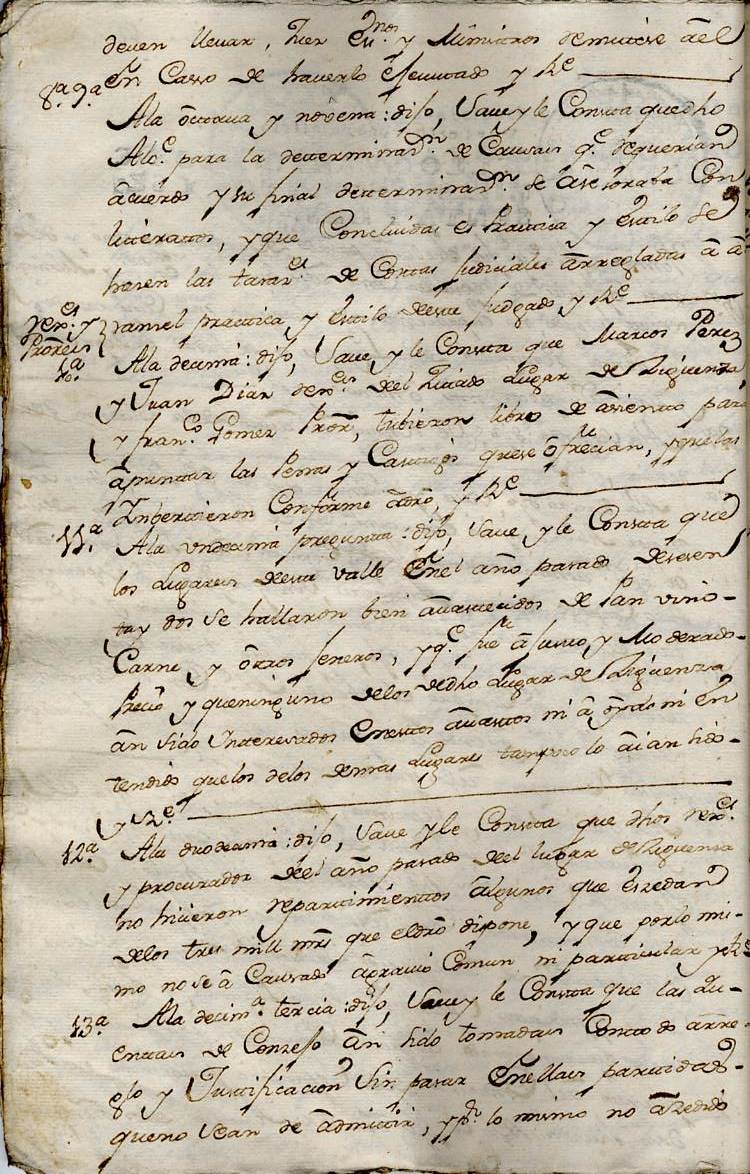 deven llevar, Juez Essnos y Ministros demitese ael
8ª 9ª en Casso de haverlo esecutado y Rde
Ala octtaua y novena: dijo, Save y le Consta que dho
Alce para la determinazn de Causas qe requerian
acuerdo y su final determinazn se asesoraba Con
litteratos, y que Concluidas es Practica y estilo se
hasen las tasaces de Costas Judiciales arregladas a a
Rexes y Prores ranzel practica, y estilo deeste Juzgado, y Rde
10ª Ala decima: dijo, Save, y le Consta que Marcos Perez
y Juan Diaz rexes del Zitado Lugar de Ziguenza
y Franco Gomez Pror, tubieron libro de asiento para
apuntar las Penas y Castigos que se ofrecian, y que las
Ynbertieron Conforme adro, y Rde
11ª Ala undecima pregunta: dijo, Save, y le Consta que
los Lugares deeste valle en el año pasado desesen
ta y dos se hallaron bien auastecidos de Pan vino-
Carne y otros generos, y qe fue a justo, y Moderado-
Precio y que ninguno delos dedho Lugar de Ziguenza
an sido Ynteresados en estos auastos ni a oydo ni en
tendido que los delos demas Lugares tampoco lo aian sido-
y Rde
12ª Ala duodecima: dijo, Save y le Consta que dhos rexes
y procurador del año pasado del lugar de Ziguenza
no hizieron repartimientos algunos que eszedan
delos tres mill mrs que el dro dispone, y que por lo mis-
mo no se a Causado agravio Comun ni particular y Rde
13ª Ala decima tercia: dijo, Save y le Consta que las qu-
entas de Consejo an sido tomadas Con todo arre-
glo y Justificacion sin pasar en ellas partidas-
que no sean de admitir, y pr lo mismo no aszedido